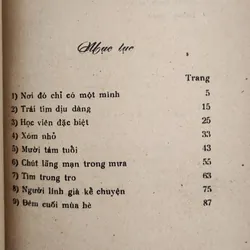 Mục lục
Trang
1) Nơi đó chỉ có một mình 5
2) Trái tim dịu dàng 15
3) Học viên đặc biệt 25
4) Xóm nhỏ 33
5) Mười tám tuổi 43
6) Chút lãng mạn trong mưa 55
7) Tìm trong tro 63
8) Người lính già kể chuyện 75
9) Đêm cuối mùa hè 87